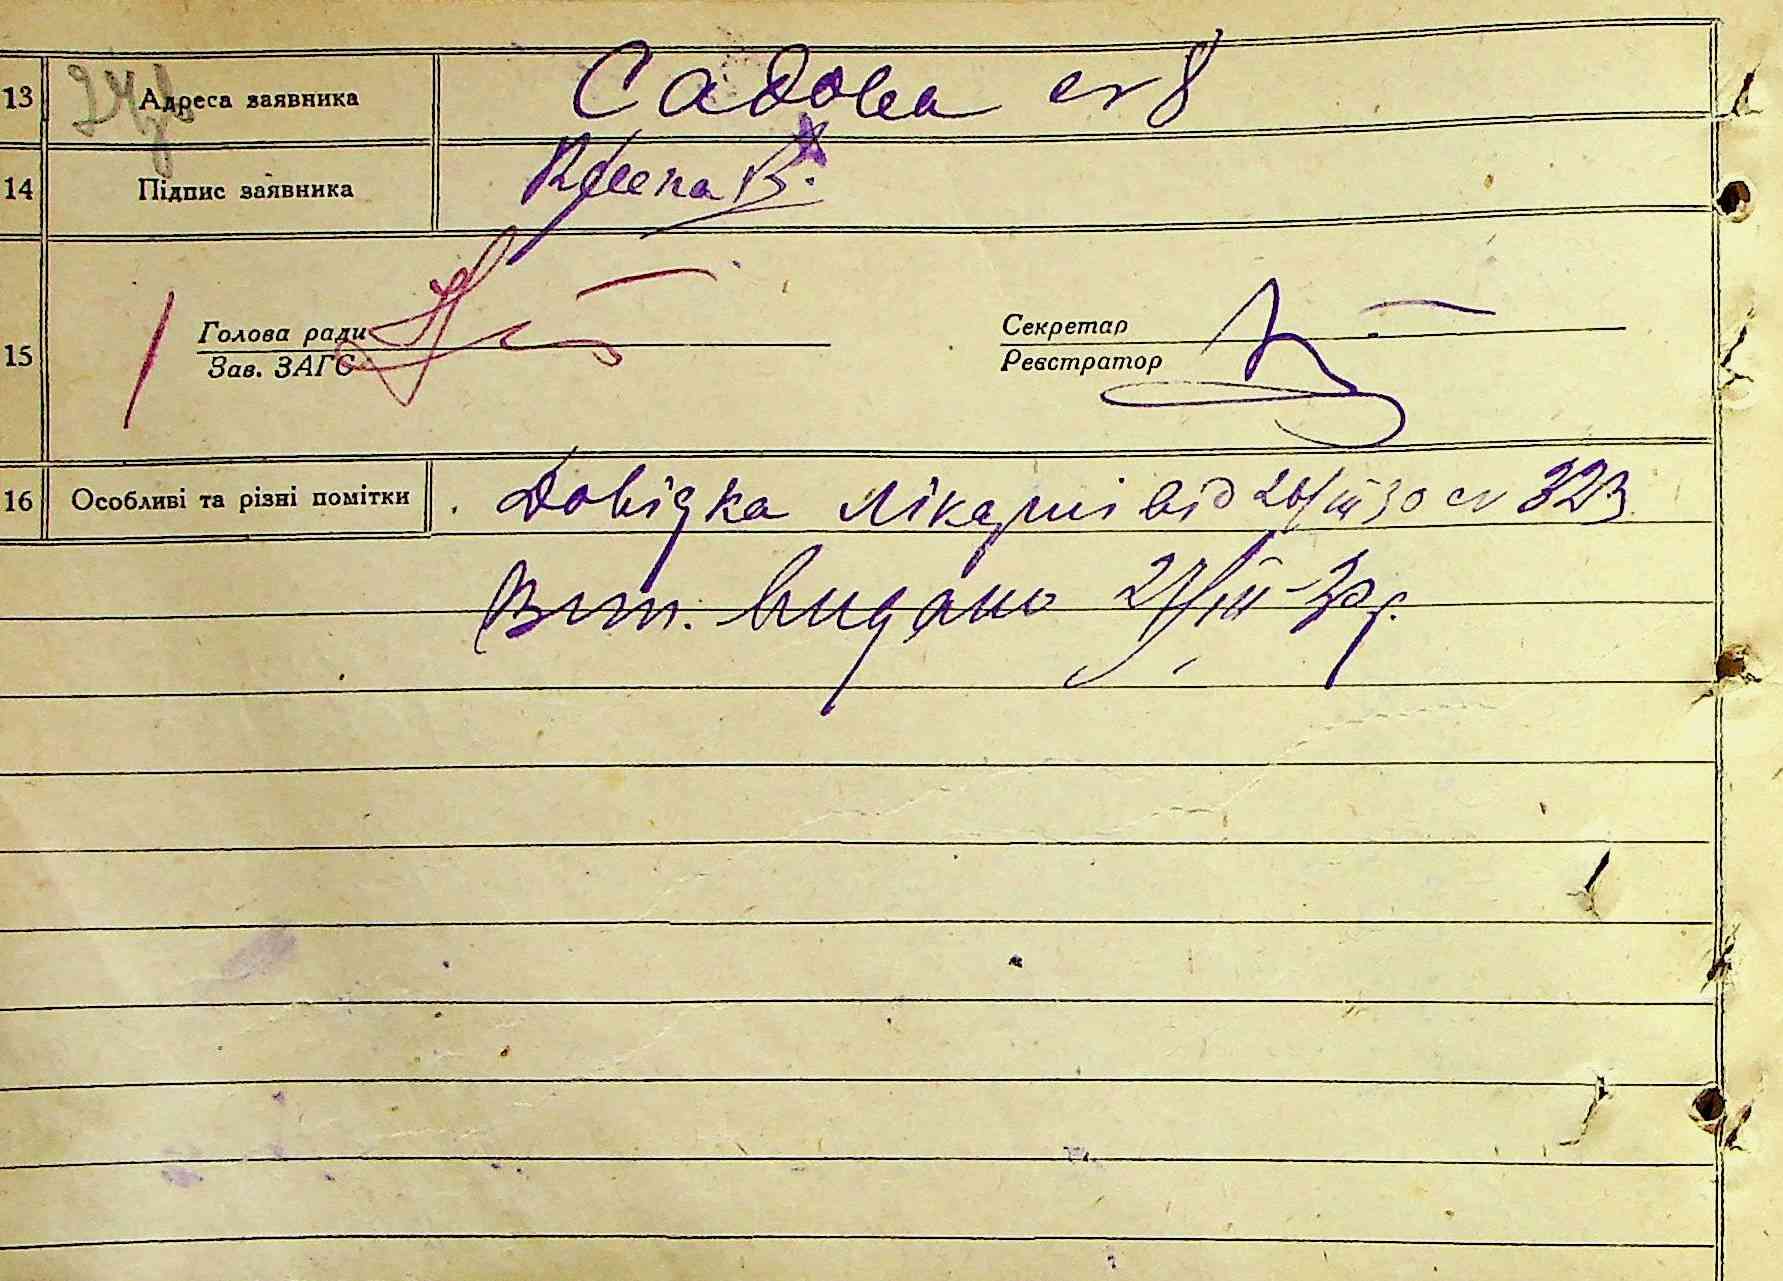 13 Адреса заявника Садова № 8
14 Підпис заявника
15 Голова ради Секретар
Зав. ЗАГС Реєстратор
16 Особливі та різні помітки Довідка лікарні від 26/III 30 № 323
Вит. видано 27/III-30 р.